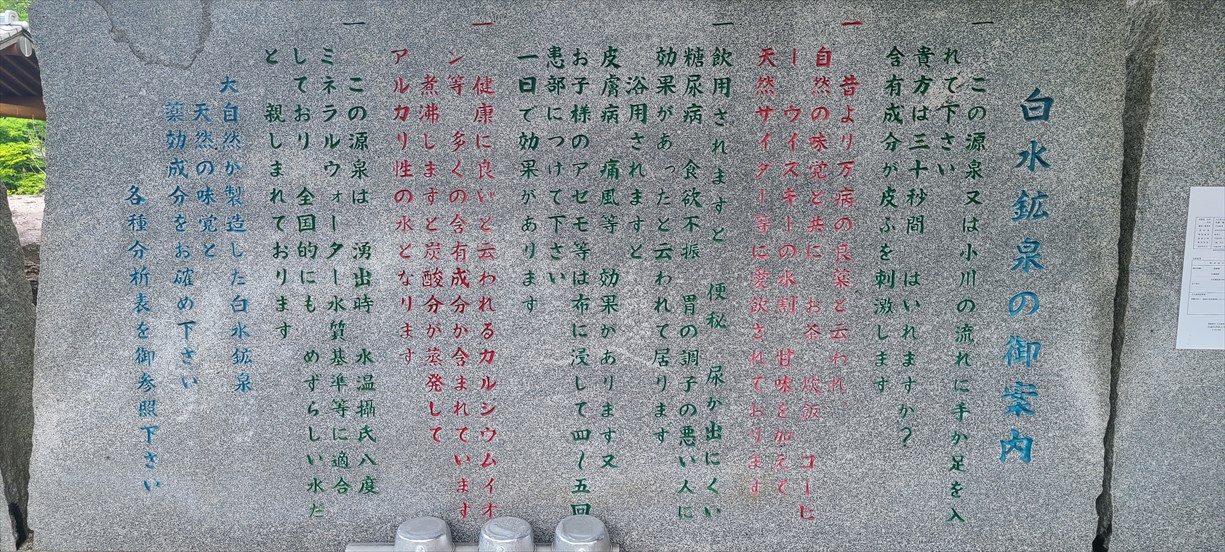 白水鉱泉の御案内
一 この源泉又は小川の流れに手か足を入
れて下さい
貴方は三十秒間 はいれますか?
含有成分が皮ふを刺激します
一 昔より万病の良薬と云われ
自然の味覚と共に お茶 炊飯 コーヒ
ー ウイスキーの水割 甘味を加えて
天然サイダー等に愛飲されております
一 飲用されますと 便秘 尿が出にくい
糖尿病 食欲不振 胃の調子の悪い人に
効果があったと云われて居ります
浴用されますと
皮膚病 痛風等 効果があります又
お子様のアゼモ等は布に浸して四〜五回
患部につけて下さい
一日で効果があります
一 健康に良いと云われるカルシウムイオ
ン等 多くの含有成分が含まれています
煮沸しますと炭酸分が蒸発して
アルカリ性の水となります
一 この源泉は 湧出時 水温攝氏八度
ミネラルウォーター水質基準等に適合
しており 全国的にも めずらしい水だ
と 親しまれております
大自然が製造した白水鉱泉
天然の味覚と
薬効成分をお確め下さい
各種分析表を御参照下さい